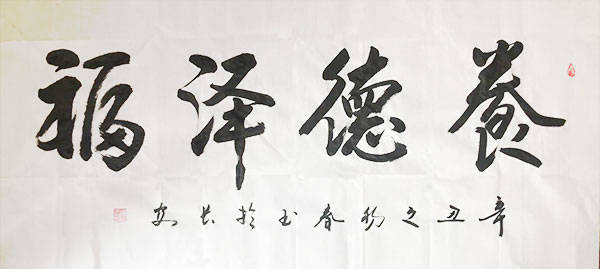 養德泽福
辛丑之初春书於长安